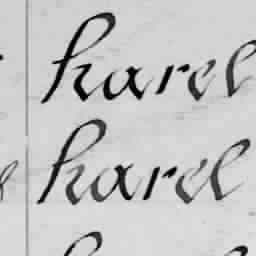 karel
karel